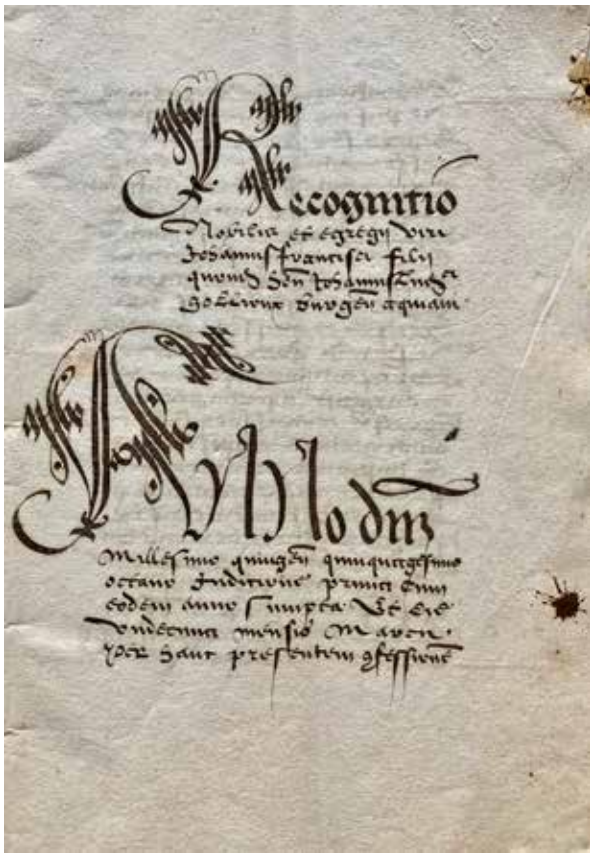 Recognitio
Nobilis et egregii viri
Johannis francisci filii
quond Johannis
burgen aquiani
Anno dm
Millesimo quingen quinquagesimo
octavo Inditione prima cum
eodem anno sumpta Et die
undecima mensis Marcii
per hanc presentem confessione